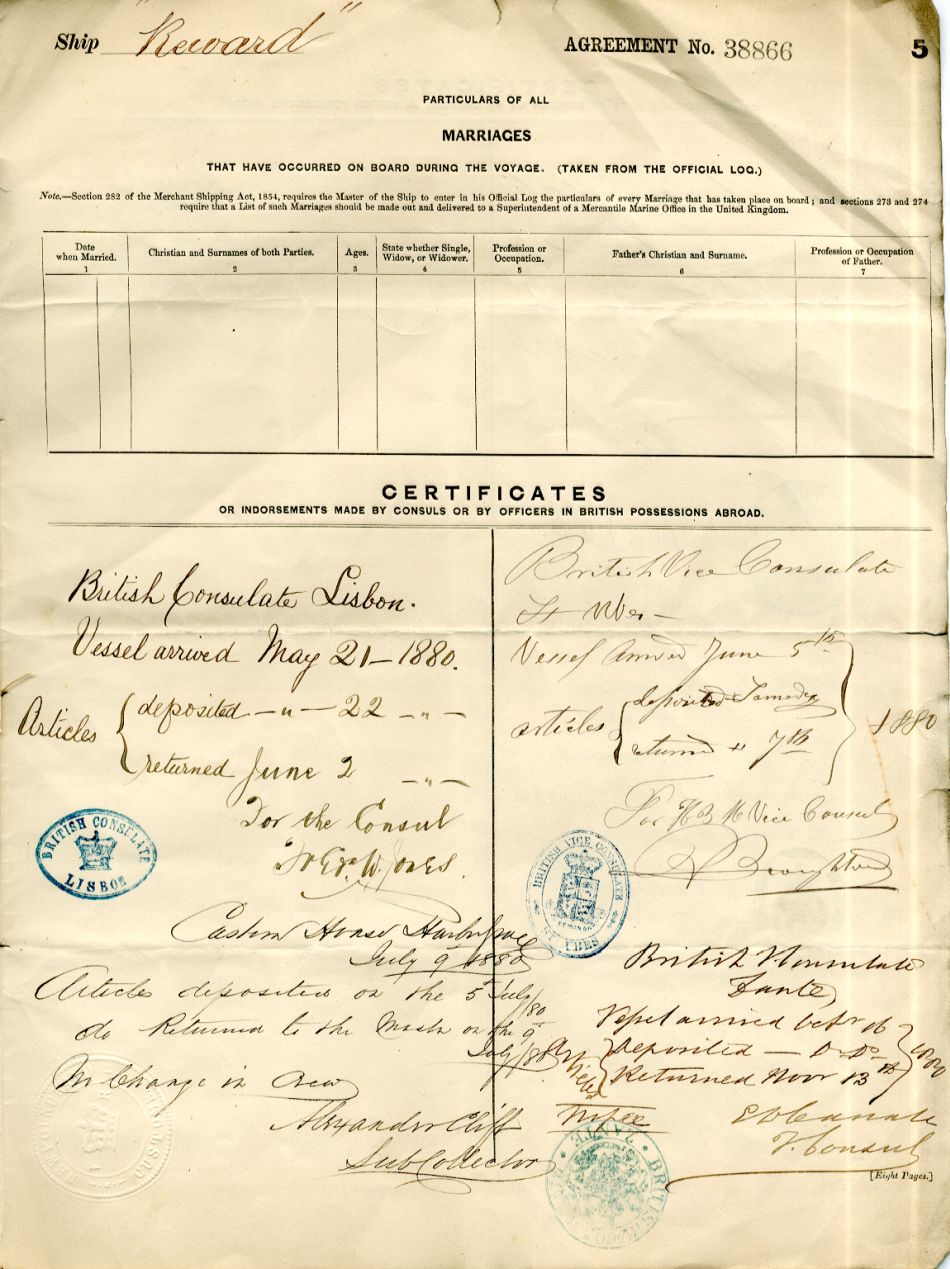 Ship "Reward"
AGREEMENT No. 38866
5
PARTICULARS OF ALL
MARRIAGES
THAT HAVE OCCURRED ON BOARD DURING THE VOYAGE. (TAKEN FROM THE OFFICIAL LOG.)
Note.—Section 282 of the Merchant Shipping Act, 1854, requires the Master of the Ship to enter in his Official Log the particulars of every Marriage that has taken place on board; and sections 273 and 274
require that a List of such Marriages should be made out and delivered to a Superintendent of a Mercantile Marine Office in the United Kingdom.
Date when Married. 1
Christian and Surnames of both Parties. 2
Ages. 3
State whether Single, Widow, or Widower. 4
Profession or Occupation. 5
Father's Christian and Surname. 6
Profession or Occupation of Father. 7
CERTIFICATES
OR INDORSEMENTS MADE BY CONSULS OR BY OFFICERS IN BRITISH POSSESSIONS ABROAD.
British Consulate Lisbon.
Vessel arrived May 21 – 1880.
Articles { deposited – " – 22 – " –
returned June 2 – " –
For the Consul
W. Jones.
BRITISH CONSULATE
LISBON
British Vice Consulate
St Ubes –
Vessel arrived June 5th
articles { deposited Same day
returned " 7th
1880
For H B M Vice Consul
Broughton
BRITISH VICE CONSULATE
ST UBES
Custom House
July 9 1880
Articles deposited on the 5 July/80
do Returned to the Master on the 9
July/80
No Change in Crew
Alexander Cliff
Sub Collector
British Consulate
Zante
Vessel arrived Octr 26
Articles { Deposited — Do Do
Returned Novr 13th
1880
V. Consul
BRITISH
ZANTE
[Eight Pages.]